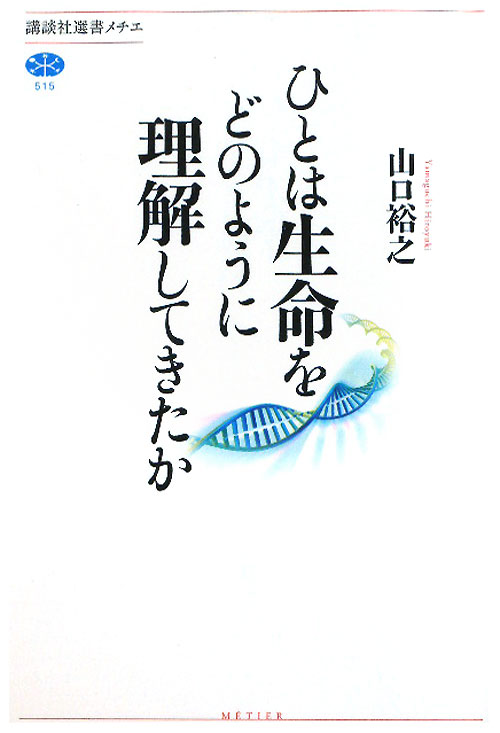 講談社選書メチエ
515
山口裕之
Yamaguchi Hiroyuki
ひとは生命を
どのように
理解してきたか
MÉTIER